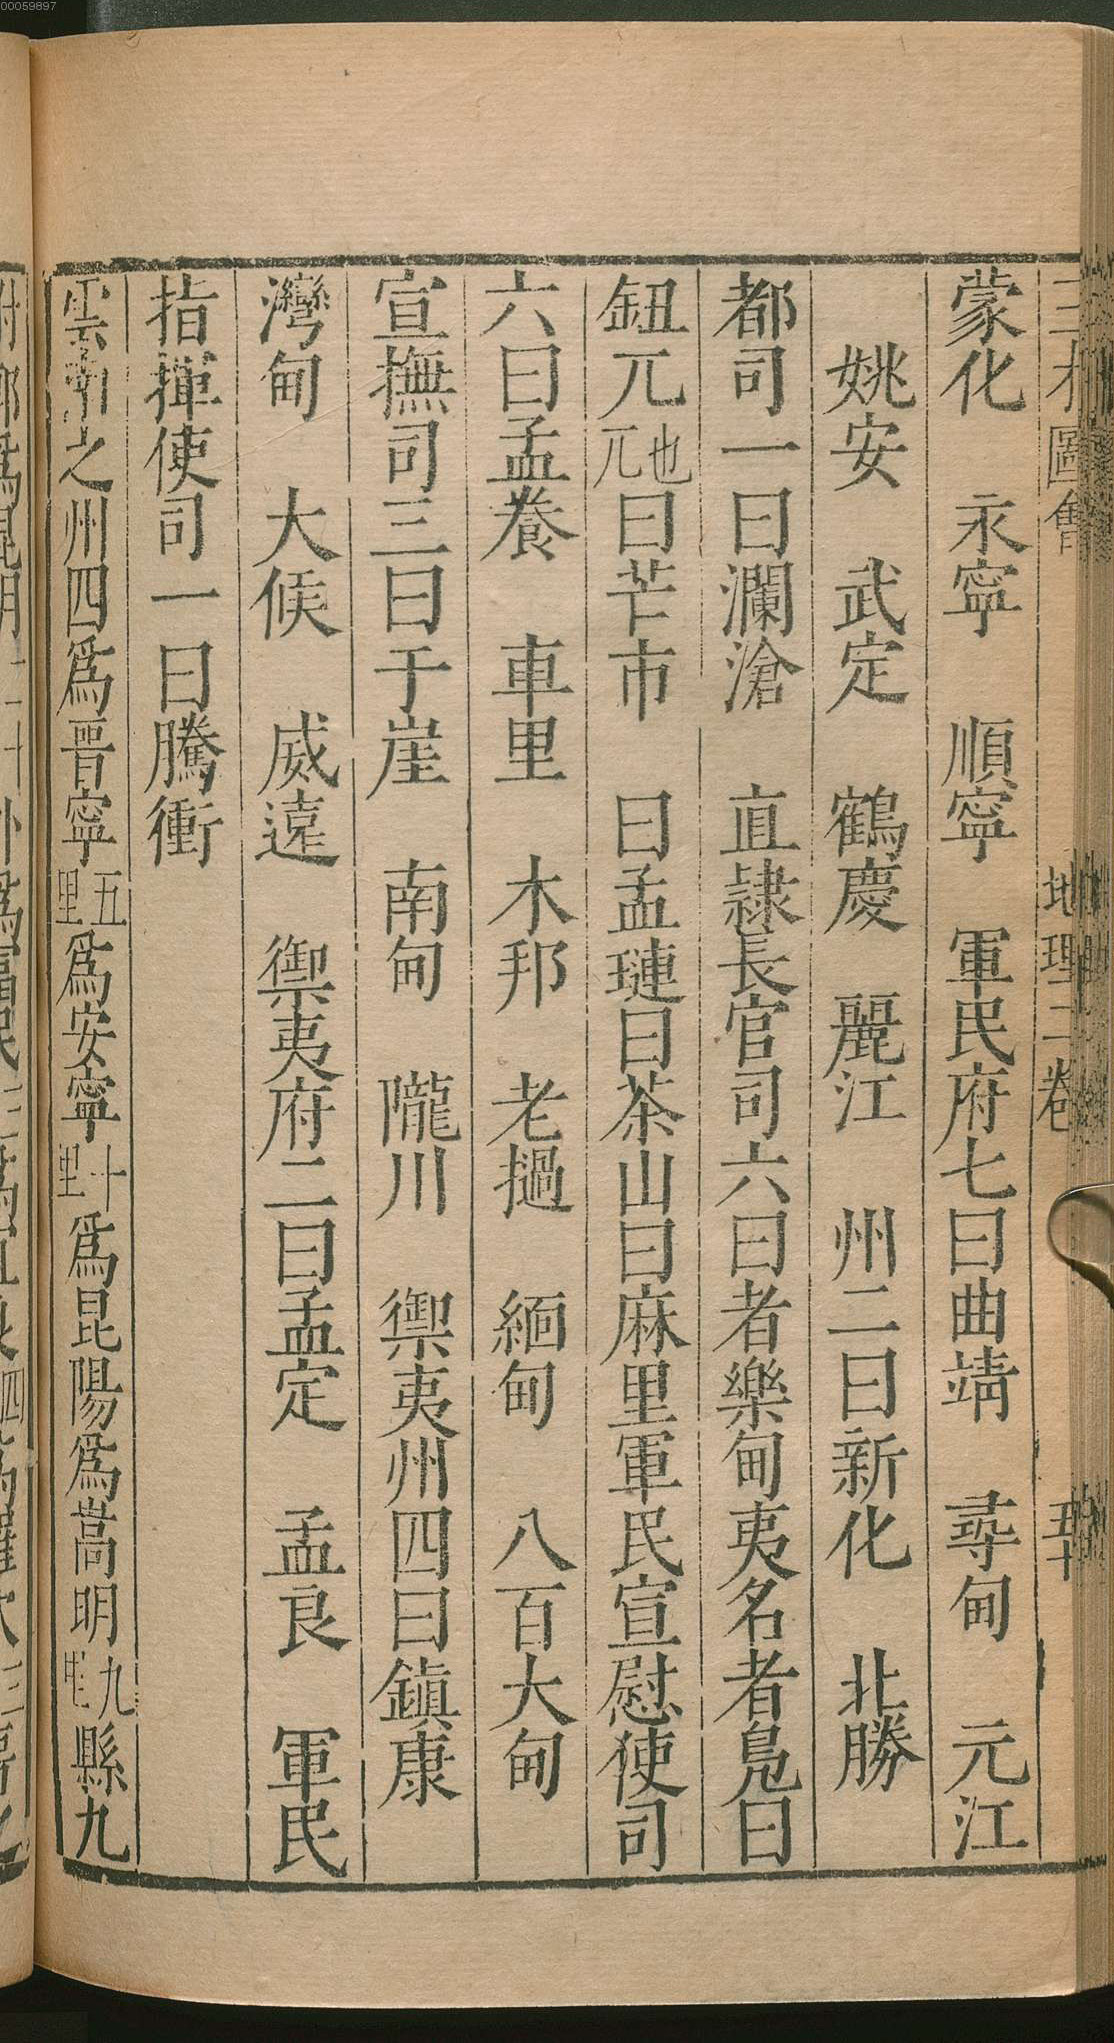 00059897
三才圖會 地理二卷 五十
蒙化 永寧 順寧 軍民府七曰曲靖 尋甸 元江
姚安 武定 鶴慶 麗江 州二曰新化 北勝
都司一曰瀾滄 直隷長官司六曰者樂甸夷名者島曰
鈕兀兀也曰芒市 曰孟璉曰茶山曰麻里軍民宣慰使司
六曰孟養 車里 木邦 老撾 緬甸 八百大甸
宣撫司三曰于崖 南甸 隴川 禦夷州四曰鎮康
灣甸 大候 威遠 禦夷府二曰孟定 孟良 軍民
指揮使司一曰騰衝
雲南之州四爲晉寧五里爲安寧十里爲昆陽爲嵩明九縣九